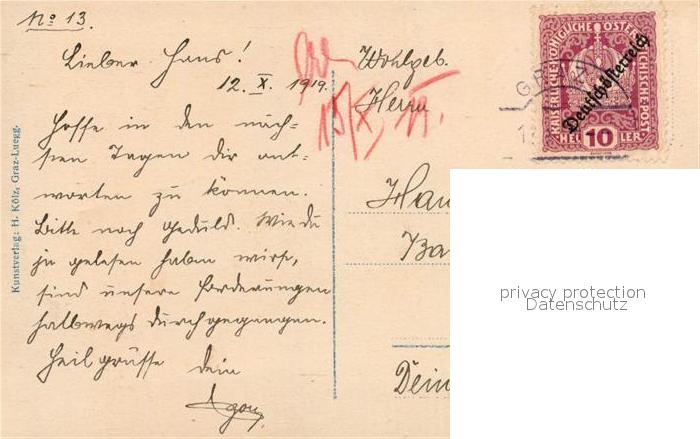 No 13.
Lieber Hans!
12. X. 1919.
Hoffe in den näch-
sten Tagen dir ant-
worten zu können.
Bitte noch Geduld. Wie du
ja gelesen haben wirst,
sind unsere Forderungen
halbwegs durchgegangen.
Heilgrüsse dein
Egon
Kunstverlag: H. Kölz, Graz-Luegg.
15/X
Wohlgeb.
Herrn
Han
Ba
Dein
KAISERLICHE KÖNIGLICHE ÖSTERREICHISCHE POST
Deutschösterreich
10
HELLER
privacy protection
Datenschutz